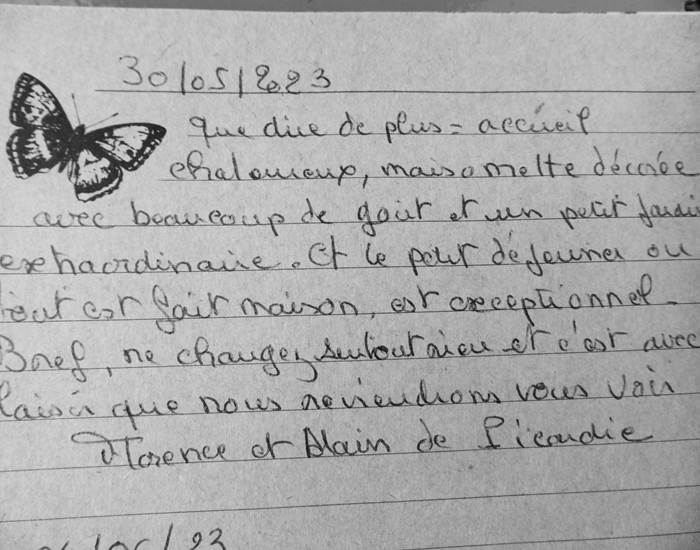 30/05/2023
que dire de plus = accueil
chaleureux, maisonnette décorée
avec beaucoup de goût et un petit jardi
extraordinaire. Et le petit déjeuner ou
tout est fait maison, est exceptionnel.
Bref, ne changez surtout rien et c'est avec
laisir que nous reviendrons vous voir
Florence et Alain de Picardie